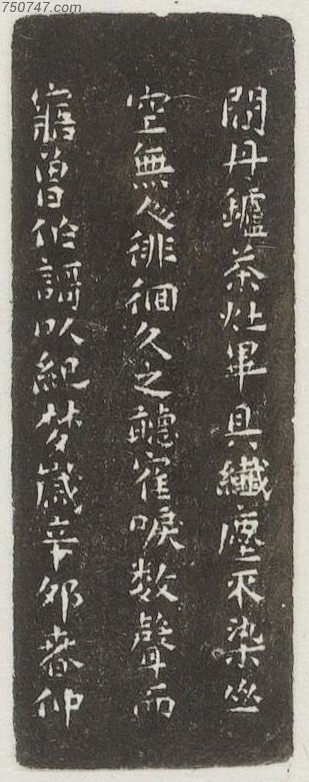 750747.com
間丹鑪茶灶畢具纖塵不染坐
空無人徘徊久之聽寉唳數聲而
寤曾作謌以紀夢歲辛卯春仲